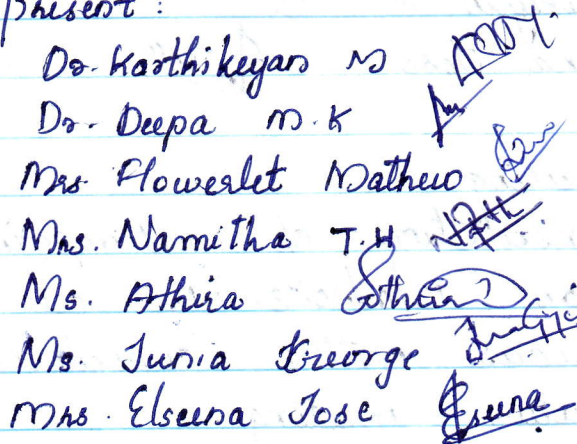 Present :
Dr. Karthikeyan M
Dr. Deepa M.K
Mrs. Flowerlet Mathew
Mrs. Namitha T.H
Ms. Athira
Ms. Junia George
Mrs. Elseena Jose